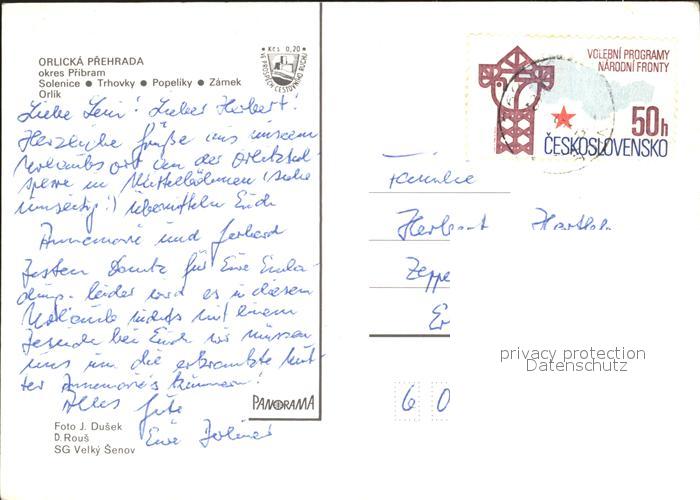 ORLICKÁ PŘEHRADA
okres Příbram
Solenice ● Trhovky ● Popeliky ● Zámek
Orlík
Kčs 0,20
VE PROSPĚCH CESTOVNÍHO RUCHU
Liebe Leni! Lieber Herbert!
Herzliche Grüße aus unserem
Urlaubsort an der Orliktal-
sperre in Mittelböhmen (siehe
umseitig!) übermitteln Euch
Annemarie und Gerhard
Besten Dank für Eure Einla-
dung. Leider wird es in diesem
Urlaub nichts mit einem
Besuch bei Euch wir müssen
uns um die erkrankte Mut-
ter Annemarie's kümmern!
Alles Gute
Eure
Foto J. Dušek
D. Rouš
SG Velký Šenov
PANORAMA
VOLEBNÍ PROGRAMY
NÁRODNÍ FRONTY
50h
ČESKOSLOVENSKO
Familie
Herbert
Zeppe
Er
privacy protection
Datenschutz
6 0